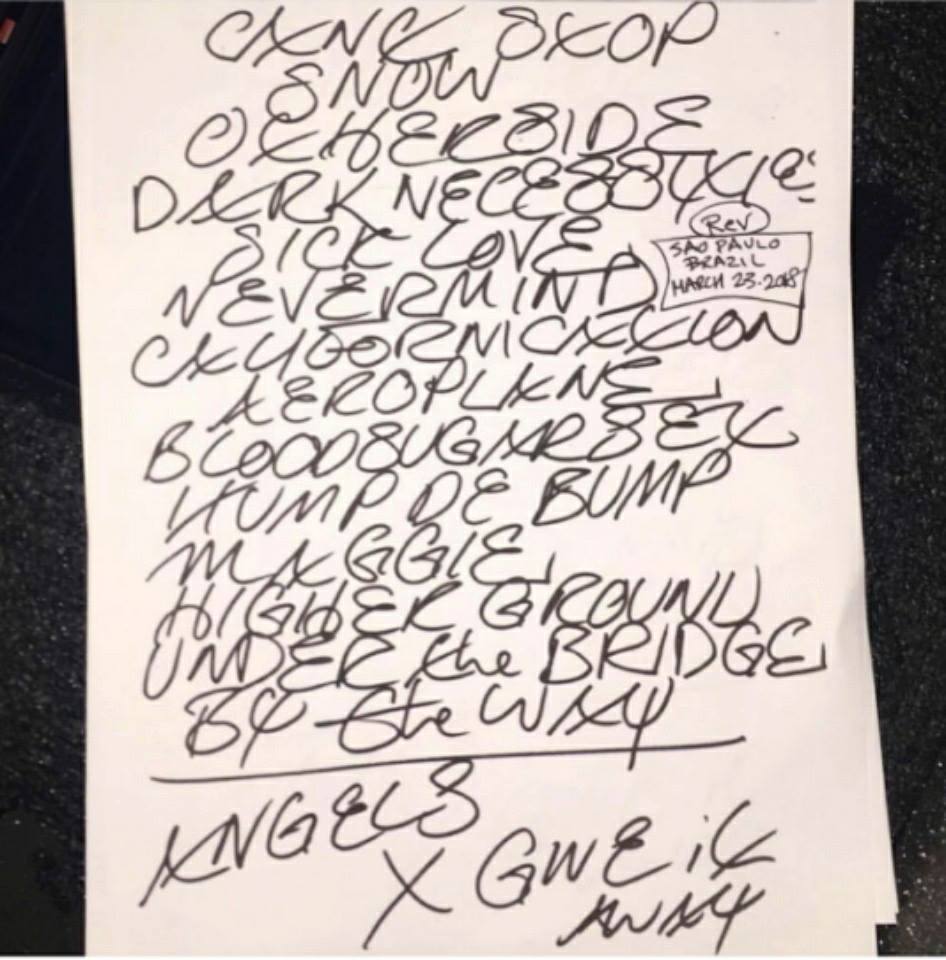 CANT STOP
SNOW
OTHERSIDE
DARK NECESSITIES
SICK LOVE
Rev
SAO PAULO
BRAZIL
MARCH 23.2018
NEVERMIND
CALIFORNICATION
AEROPLANE
BLOODSUGARSEX
HUMP DE BUMP
MAGGIE
HIGHER GROUND
UNDER the BRIDGE
BY the WAY
ANGELS
X GIVE it
AWAY